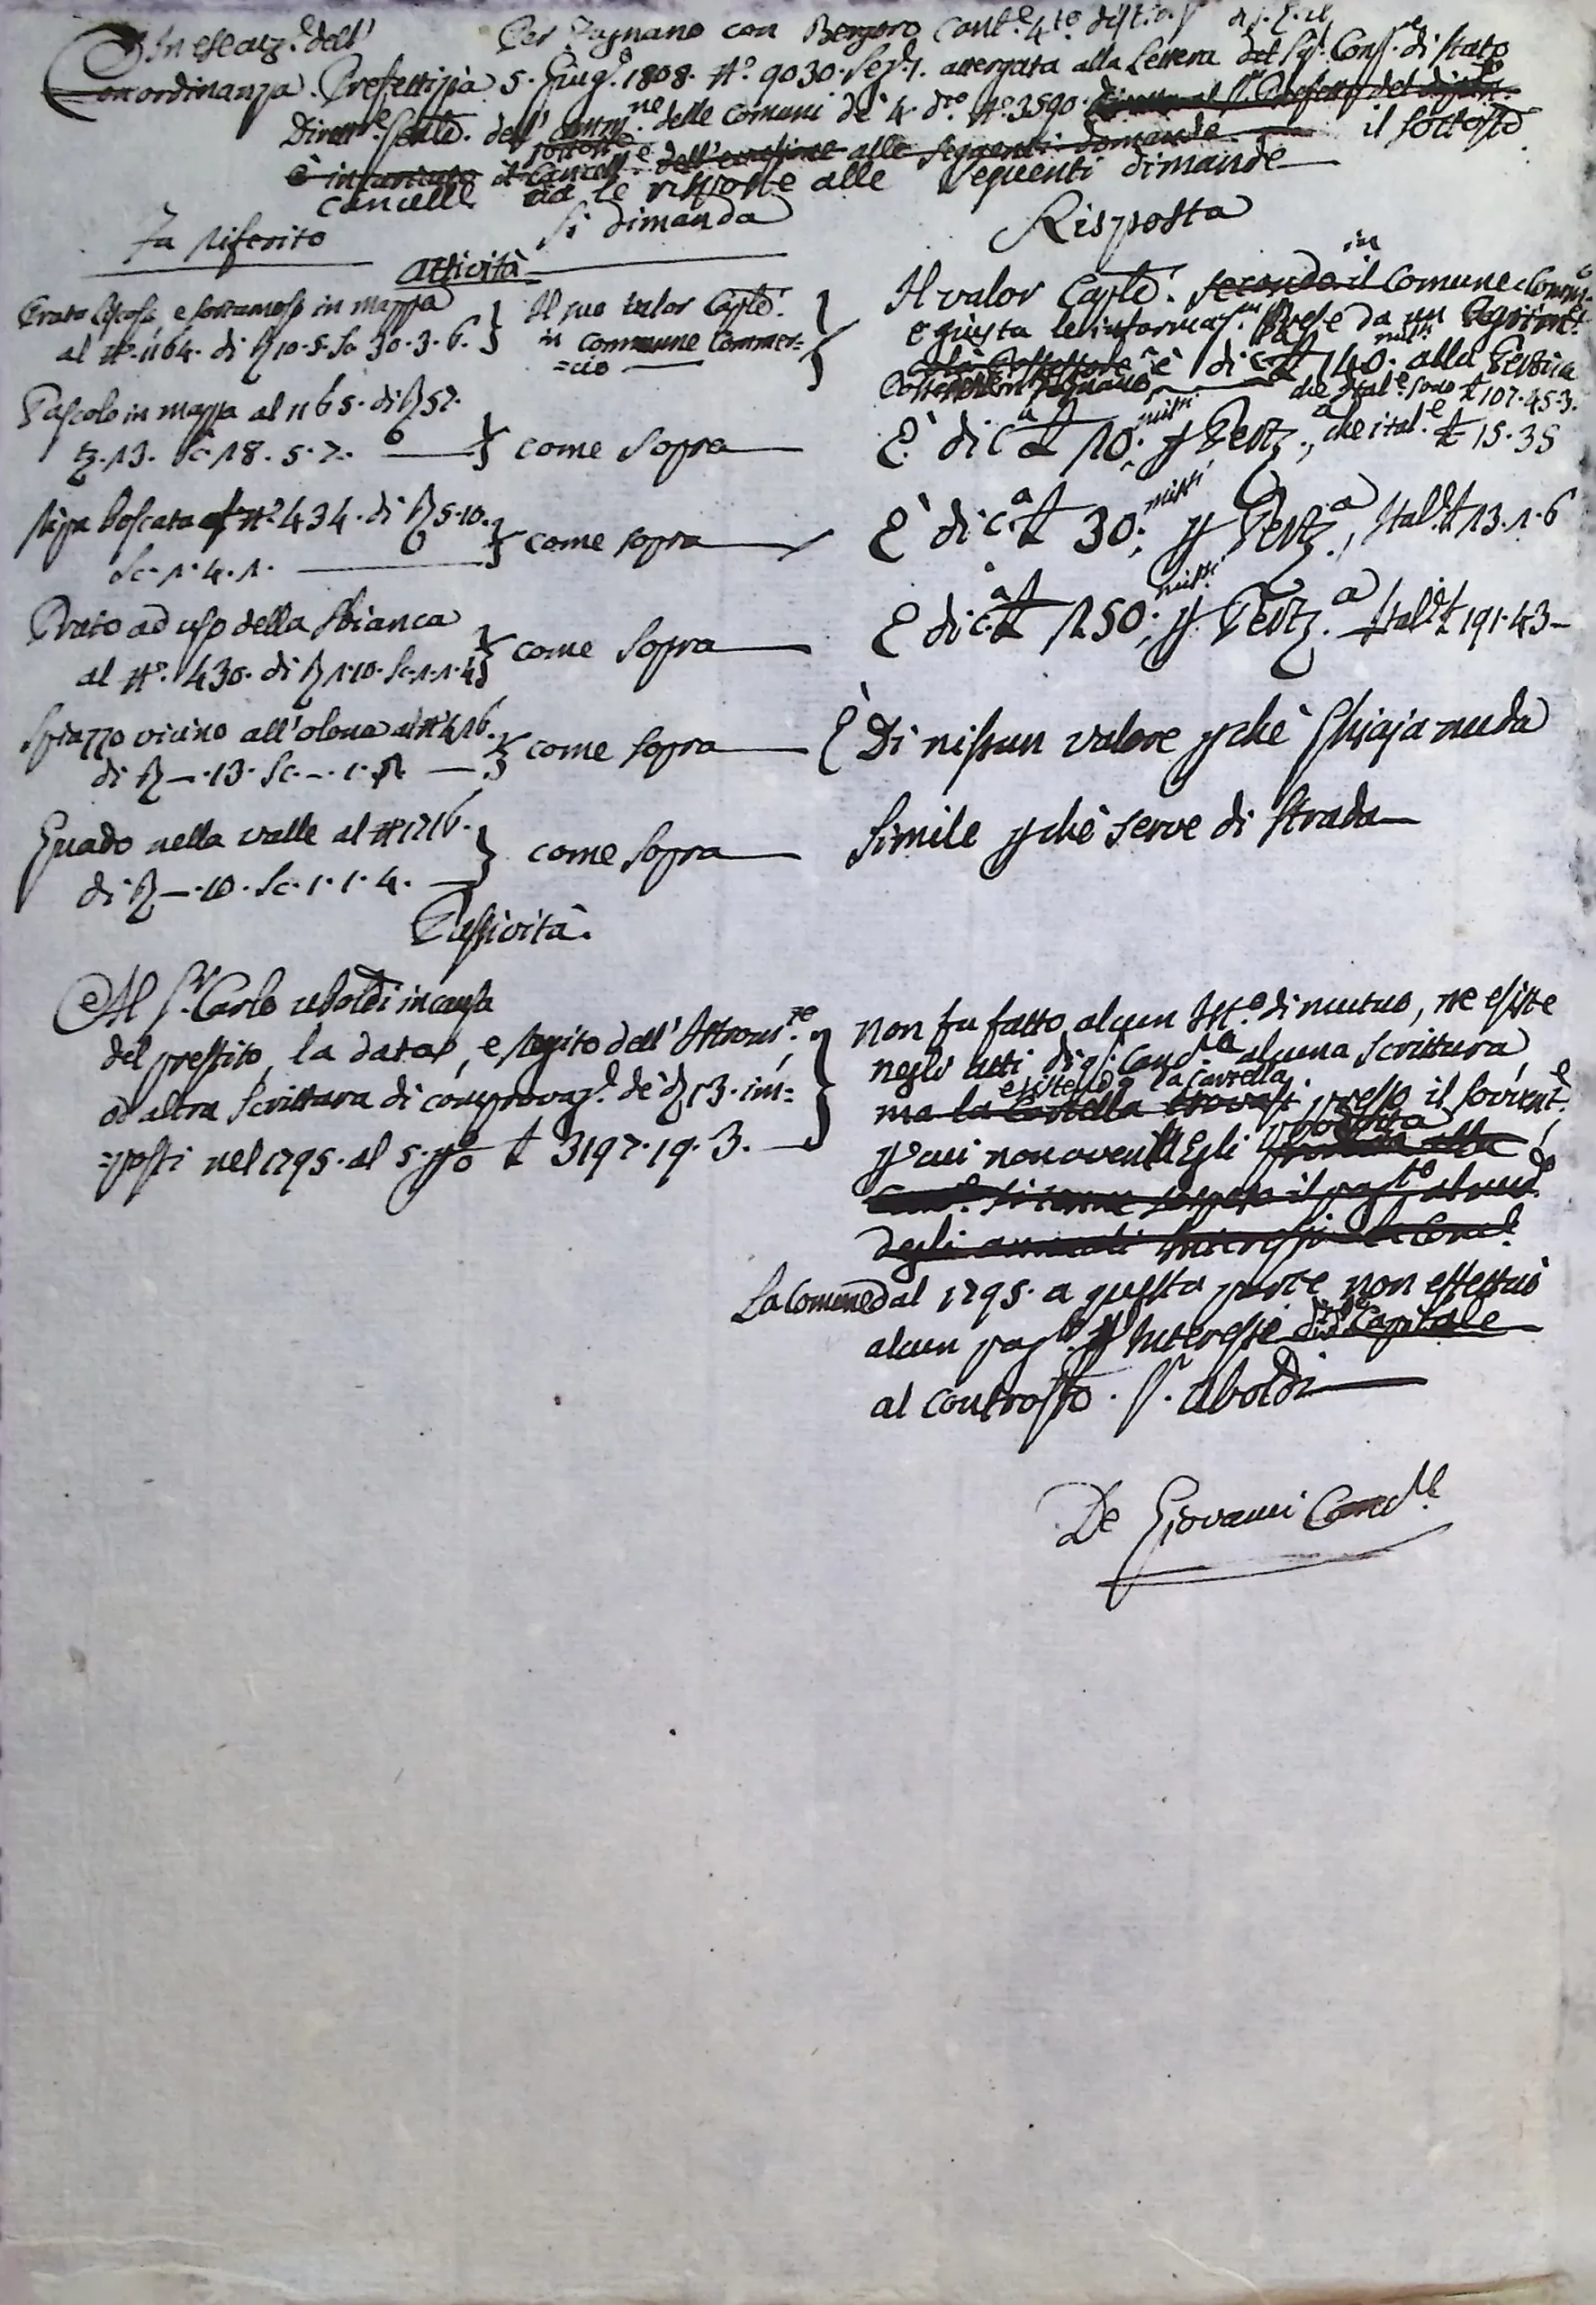 In esecuz.e dell' Per Fagnano con Bergoro Cant.e 4.to
ordinanza Prefettizia 5. Giug.o 1808. N.o 9030. Sez. 1. attergata alla Lettera del Sig.r Cons.re di Stato
Dirett.e Genle. dell' Amm.ne delle Comuni de' 4. d.to N.o 3590. il sottosto
è incaricato il Cancell.e dell'evasione alle seguenti domande
cancelle dà le risposte alle seguenti dimande
Fu riferito
Si dimanda
Risposta
Attività
Prato in mappa
al N.o 1164. di 10.5. Sc. 30.3.6.
Il suo valor Caple.
in commune Commer=
=cio
Il valor Caple. secondo il in Comune Comm.o
e giusta le informaz.ni prese da un
è di c.a £ 140. mil.i alla Pertica
che Ital.e sono £ 107.45.3.
Pascolo in mappa al 1165. di 57.
13. Sc. 18.5.7.
come sopra
È di c.a £ 10. mil.i p Pertz.a, che ital.e £ 15.35
Ripa boscata al N.o 434. di 5.10.
Sc. 1.4.1.
come sopra
È di c.a £ 30. mil.i p Pertz.a, Ital.e £ 13.1.6
Prato ad uso della Sbianca
al N.o 430. di 1.10. Sc. 1.1.4
come sopra
È di c.a £ 250. mil.i p Pertz.a Ital.e £ 191.43
Spiazzo vicino all'olona al N.o 416.
di —.13. Sc. —.1.
come sopra
È Di nissun valore pchè Ghiaja nuda
Guado nella valle al N.o 1216.
di —.10. Sc. 1.1.4.
come sopra
Simile pchè serve di Strada
Passività.
Al S.r Carlo Uboldi in causa
del prestito, la data, e seguito dell' Istrom.to
od altra Scrittura di comprovaz.e de' 13. im=
=posti nel 1795. al 5. p%o £ 3197.19.3.
Non fu fatto alcun Ist.o di mutuo, ne esiste
negli atti di q.sta Canc.lla alcuna scrittura,
esistendo la Cartella
ma la Cartella trovasi presso il sovvent.e
p cui non avendola Egli prodotta
degli annuali Interessi
La Comune dal 1795. a questa parte non effettuò
alcun pag.to p Interesse di d.to Capitale
al controsto. S.r Uboldi
De Giovanni Canc.lle